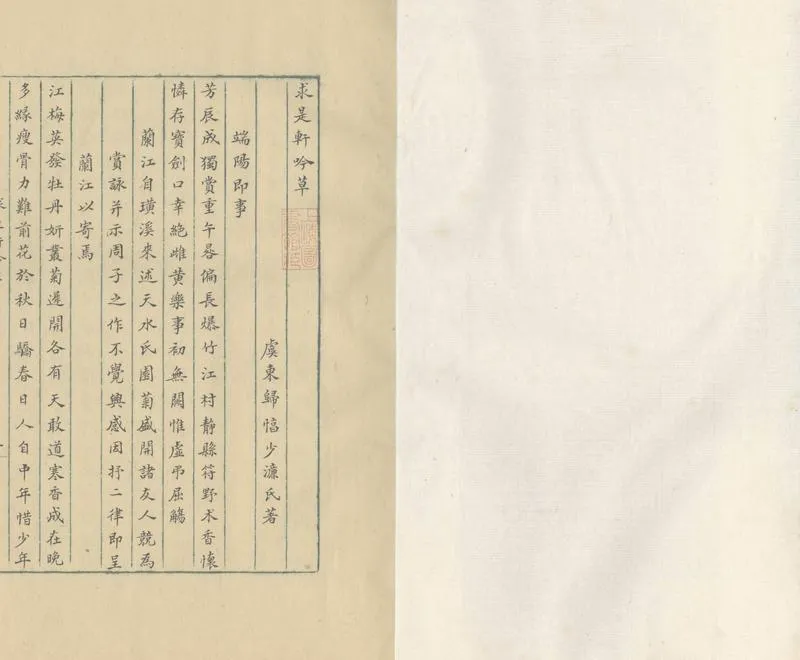 求是軒吟草
虞東歸恆少濂氏著
端陽即事
芳辰成獨賞重午晷偏長爆竹江村靜縣符野术香懷
憐存寶劍口幸絕雌黄樂事初無闕惟虛弔屈觴
蘭江自璜溪來述天水氏園菊盛開諸友人競為
賞詠并示周子之作不覺興感因抒二律即呈
蘭江以寄焉
江梅英發牡丹妍叢菊遲開各有天敢道寒香成在晚
多緣瘦骨力難前花於秋日驕春日人自中年惜少年